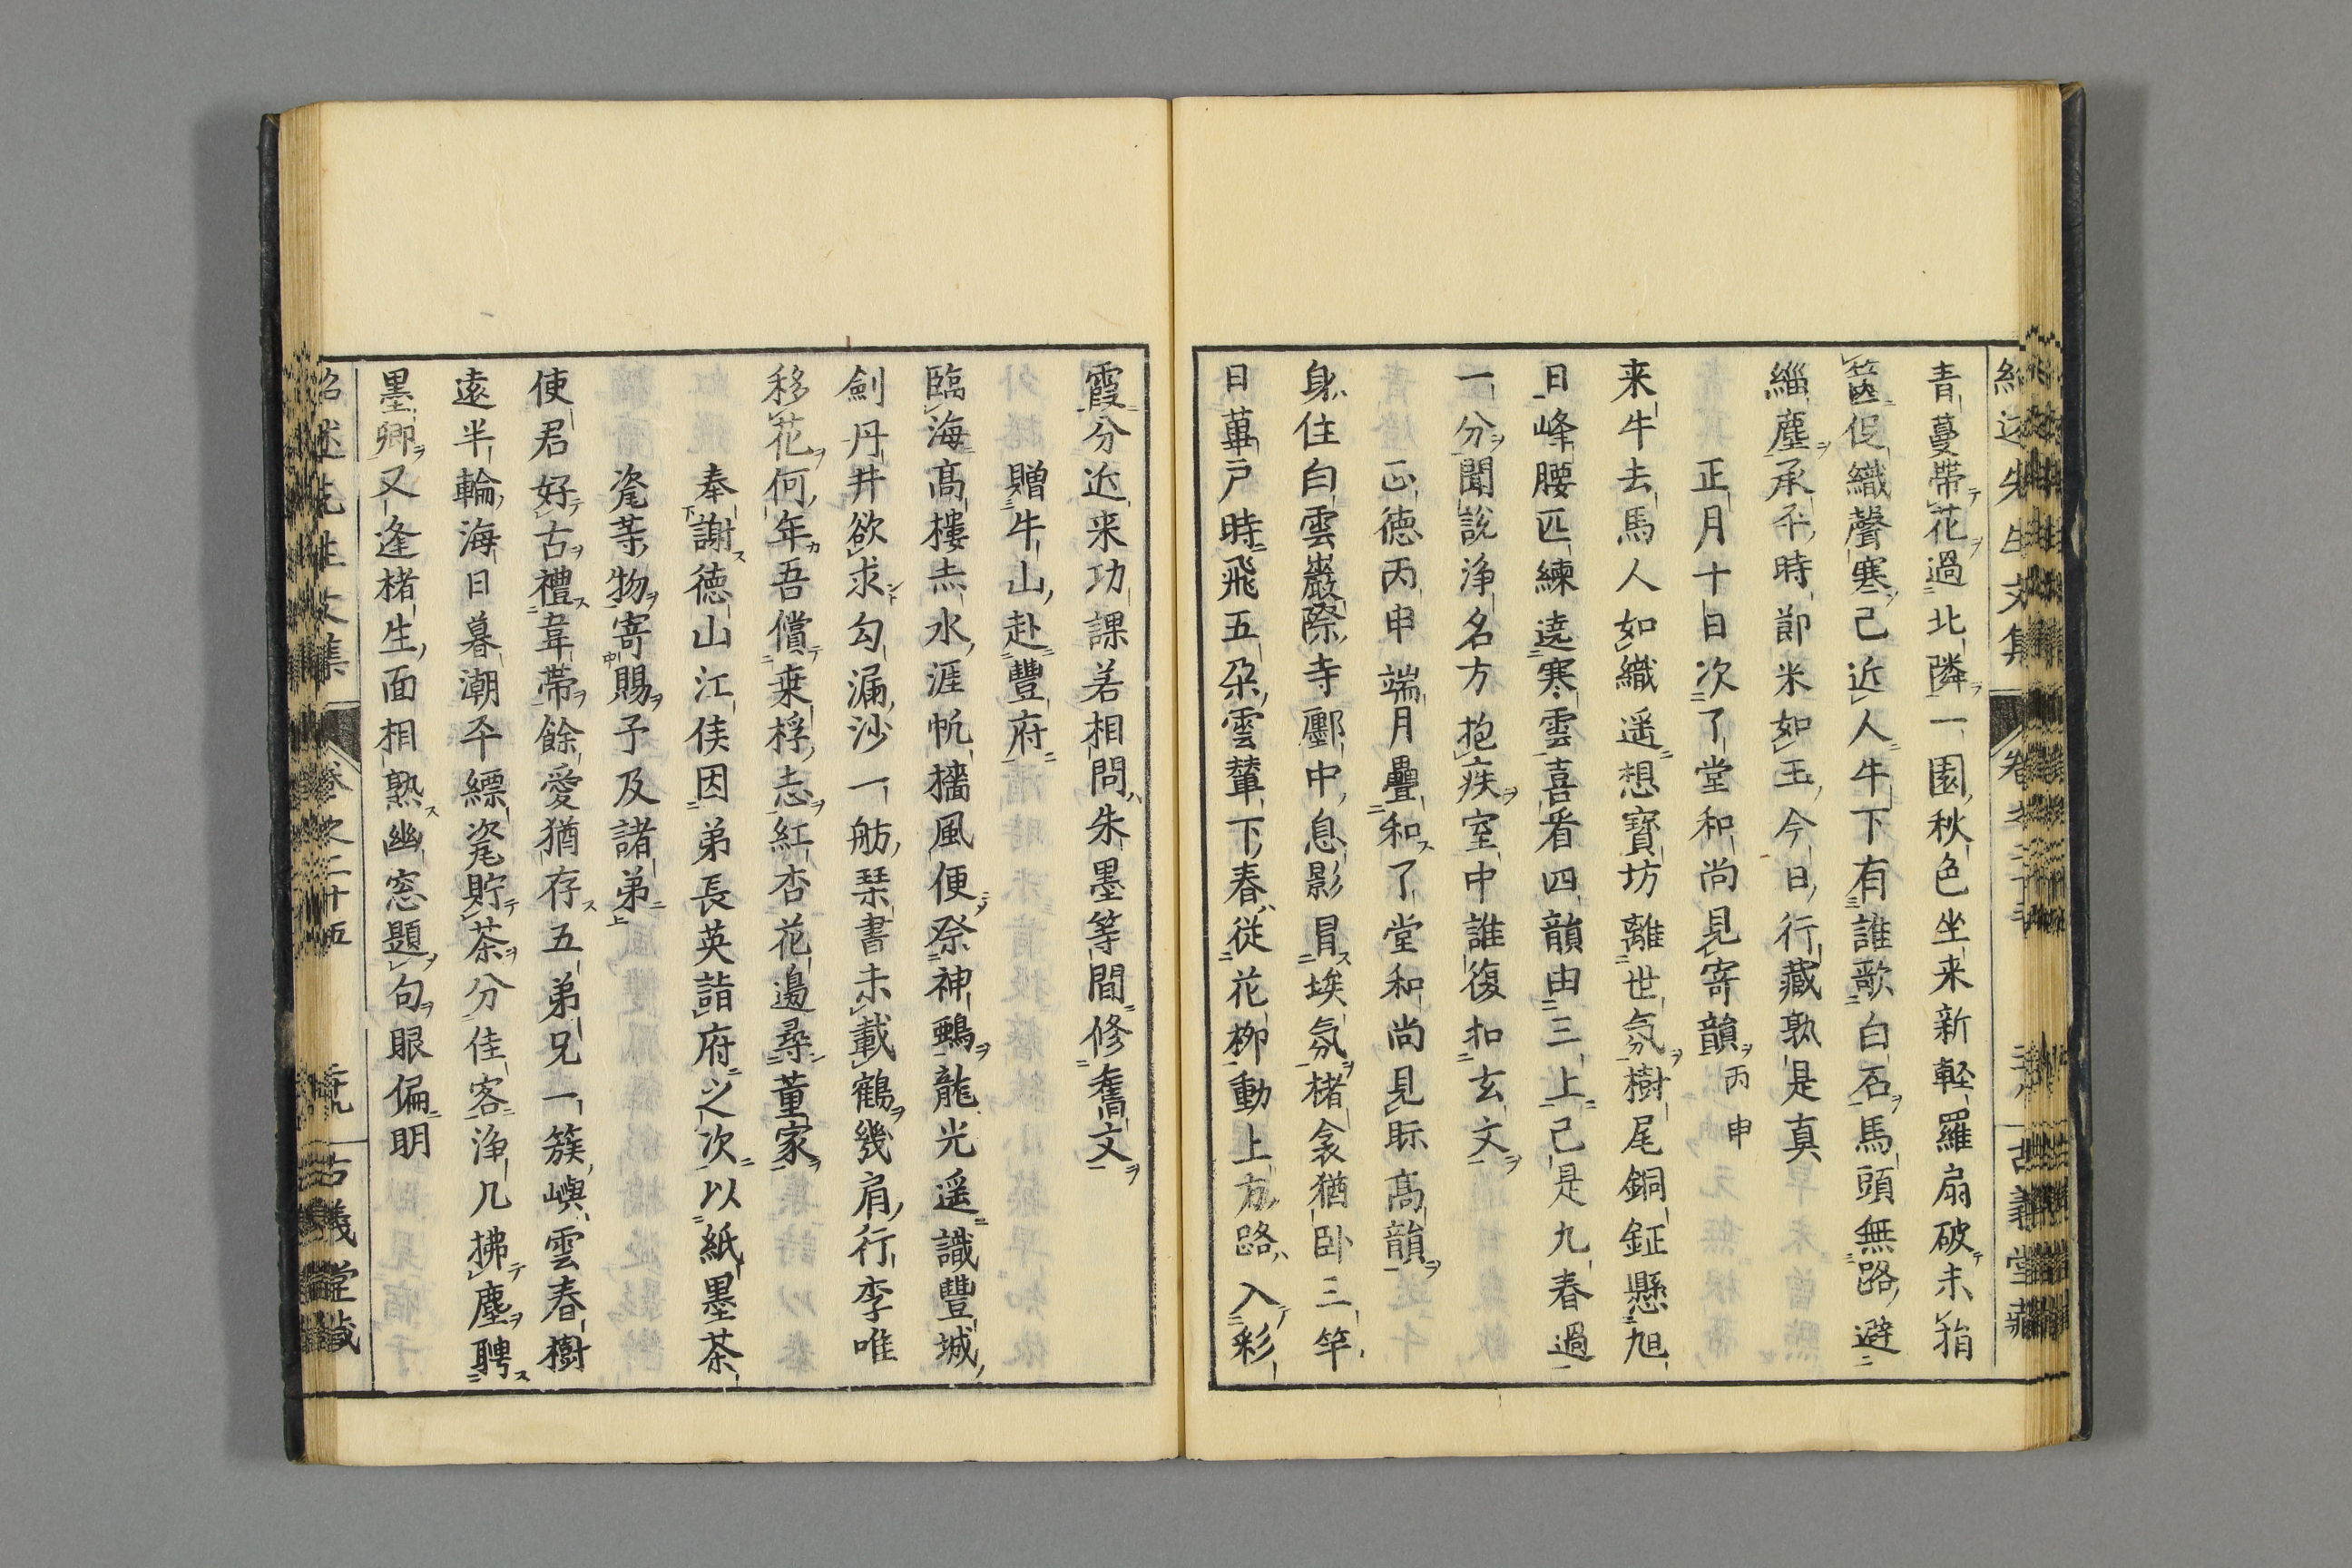 青蔓帶花過北隣一園秋色坐来新軽羅扇破未㨗
筐促織聲寒已近人牛下有誰歌白石馬頭無路避
緇塵承平時節米如玉今日行藏孰是真
正月十日次了堂和尚見寄韻丙申
来牛去馬人如織遥想寶坊離世氛樹尾銅鉦懸旭
日峰腰匹練遶寒雲喜看四韻由三上已是九春過
一分聞說浄名方抱疾室中誰復扣玄文
正徳丙申端月疊和了堂和尚見眎高韻
身住白雲巖際寺鄽中息影冒埃氛楮衾猶卧三竿
日蓽戸時飛五朶雲輦下春従花栁動上方路入彩
霞分近来功課若相問朱墨等間修舊文
贈牛山赴豐府
臨海高樓赤水涯帆檣風便祭神鵶龍光遥識豐城
劍丹井欲求勾漏沙一舫琹書未載鶴幾肩行李唯
移花何年吾償乗桴志紅杏花邉尋董家
奉謝徳山江侯因弟長英詣府之次以紙墨茶
瓷等物寄賜予及諸弟
使君好古禮韋帶餘愛猶存五弟兄一簇嶼雲春樹
遠半輪海日暮潮平縹瓷貯茶分佳客浄几拂塵聘
墨卿又逢楮生面相熟幽窓題句眼偏明
紹述先生文集 卷之二十五 古義堂藏